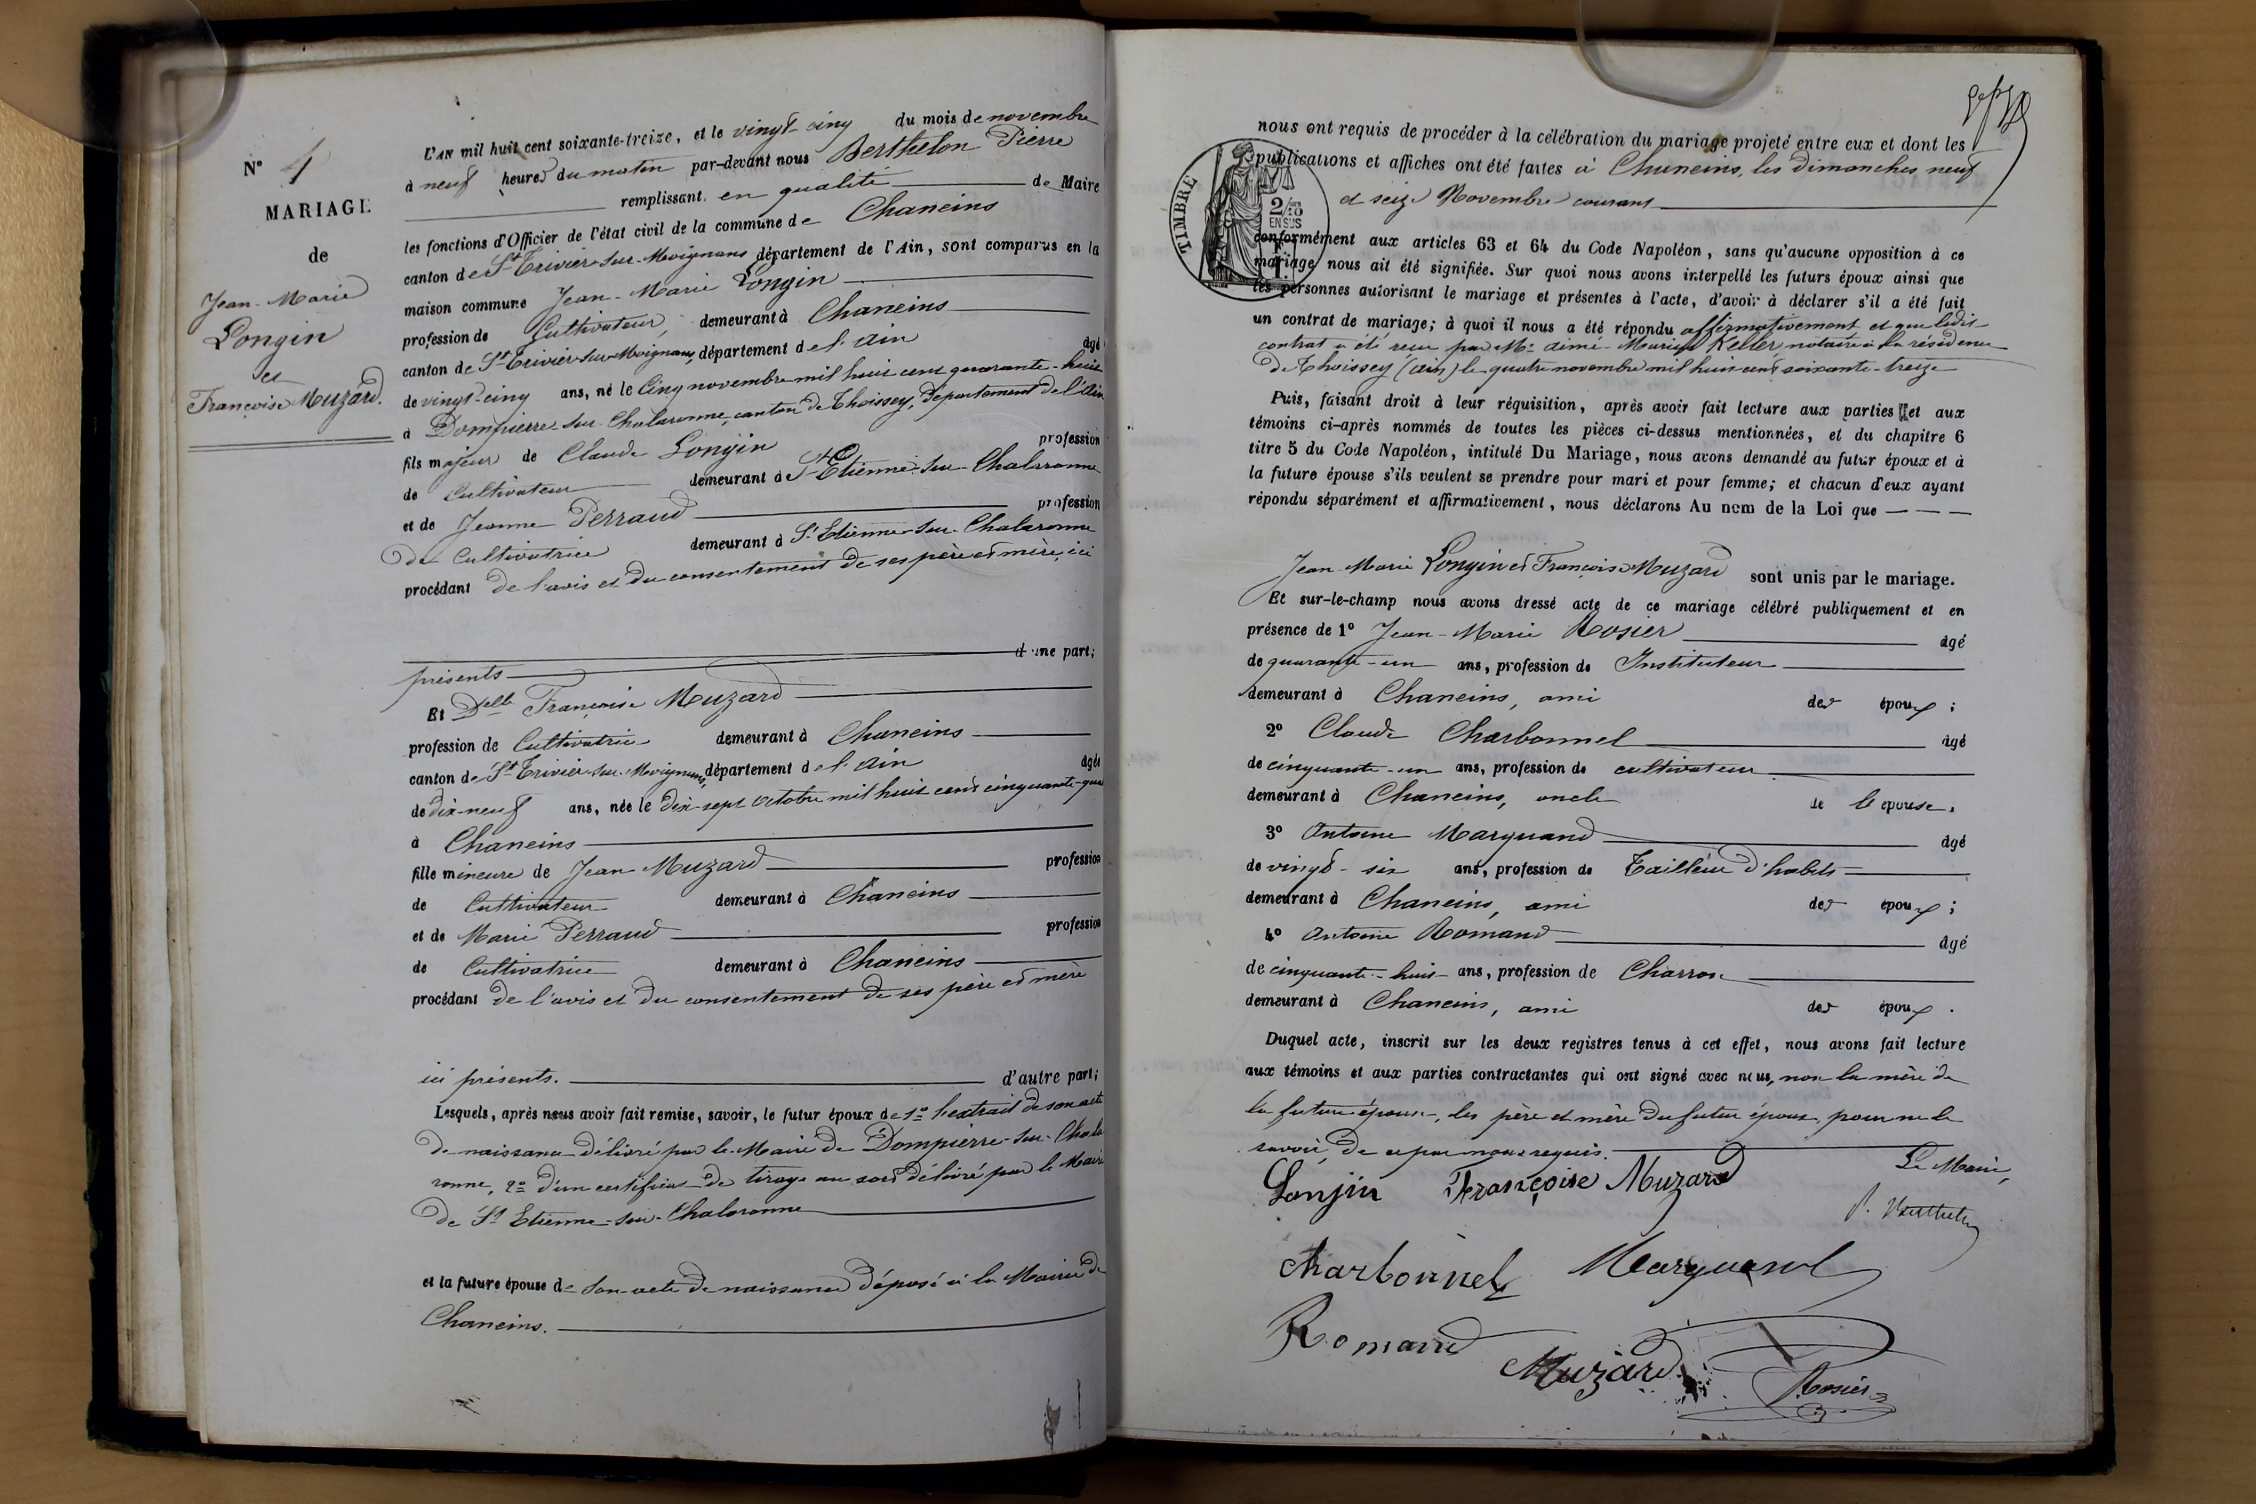 N° 4
MARIAGE
de
Jean-Marie
Longin
et
Françoise Muzard.
L'AN mil huit cent soixante-treize, et le vingt-cinq du mois de novembre
à neuf heures du matin par-devant nous Berthelon Pierre
remplissant en qualité de Maire
les fonctions d'Officier de l'état civil de la commune de Chaneins
canton de St Trivier-sur-Moignans département de l'Ain, sont comparus en la
maison commune Jean-Marie Longin
profession de Cultivateur, demeurant à Chaneins
canton de St Trivier-sur-Moignans, département de l'Ain âgé
de vingt-cinq ans, né le Cinq novembre mil huit cent quarante-huit
à Dompierre-sur-Chalaronne, canton de Thoissey, Département de l'Ain
fils majeur de Claude Longin profession
de Cultivateur demeurant à St Etienne-sur-Chalaronne
et de Jeanne Perraud profession
de Cultivatrice demeurant à St Etienne-sur-Chalaronne
procédant de l'avis et du consentement de ses père et mère, ici
présents d'une part;
Et Delle Françoise Muzard
profession de Cultivatrice demeurant à Chaneins
canton de St Trivier-sur-Moignans, département de l'Ain âgée
de dix-neuf ans, née le dix-sept octobre mil huit cent cinquante-qua
à Chaneins
fille mineure de Jean Muzard profession
de Cultivateur demeurant à Chaneins
et de Marie Perraud profession
de Cultivatrice demeurant à Chaneins
procédant de l'avis et du consentement de ses père et mère
ici présents. d'autre part;
Lesquels, après nous avoir fait remise, savoir, le futur époux de 1° l'extrait de son acte
de naissance délivré par le Maire de Dompierre-sur-Chala
ronne, 2° d'un certificat de tirage au sort délivré par le Maire
de St Etienne-sur-Chalaronne
et la future épouse de son acte de naissance déposé à la Mairie de
Chaneins.
TIMBRE
2/10
EN SUS
nous ont requis de procéder à la célébration du mariage projeté entre eux et dont les
publications et affiches ont été faites à Chaneins, les dimanches neuf
et seize Novembre courant
conformément aux articles 63 et 64 du Code Napoléon, sans qu'aucune opposition à ce
mariage nous ait été signifiée. Sur quoi nous avons interpellé les futurs époux ainsi que
les personnes autorisant le mariage et présentes à l'acte, d'avoir à déclarer s'il a été fait
un contrat de mariage; à quoi il nous a été répondu affirmativement et que ledit
contrat a été reçu par Me Aimé-Maurice Keller, notaire à la résidence
de Thoissey (Ain) le quatre novembre mil huit cent soixante-treize
Puis, faisant droit à leur réquisition, après avoir fait lecture aux parties et aux
témoins ci-après nommés de toutes les pièces ci-dessus mentionnées, et du chapitre 6
titre 5 du Code Napoléon, intitulé Du Mariage, nous avons demandé au futur époux et à
la future épouse s'ils veulent se prendre pour mari et pour femme; et chacun d'eux ayant
répondu séparément et affirmativement, nous déclarons Au nom de la Loi que
Jean Marie Longin et Françoise Muzard sont unis par le mariage.
Et sur-le-champ nous avons dressé acte de ce mariage célébré publiquement et en
présence de 1° Jean-Marie Rosier âgé
de quarante-un ans, profession de Instituteur
demeurant à Chaneins, ami des époux;
2° Claude Charbonnel âgé
de cinquante-un ans, profession de cultivateur
demeurant à Chaneins, oncle de l'épouse.
3° Antoine Marguand âgé
de vingt-six ans, profession de Tailleur d'habits
demeurant à Chaneins, ami des époux;
4° Antoine Romand âgé
de cinquante-huit ans, profession de Charron
demeurant à Chaneins, ami des époux.
Duquel acte, inscrit sur les deux registres tenus à cet effet, nous avons fait lecture
aux témoins et aux parties contractantes qui ont signé avec nous, non la mère de
la future épouse, les père et mère du futur époux, pour ne le
savoir, de ce par nous requis.
Le Maire,
Lonjin Françoise Muzard
P. Berthelon
Charbonnel Marguand
Romand
Muzard Rosier